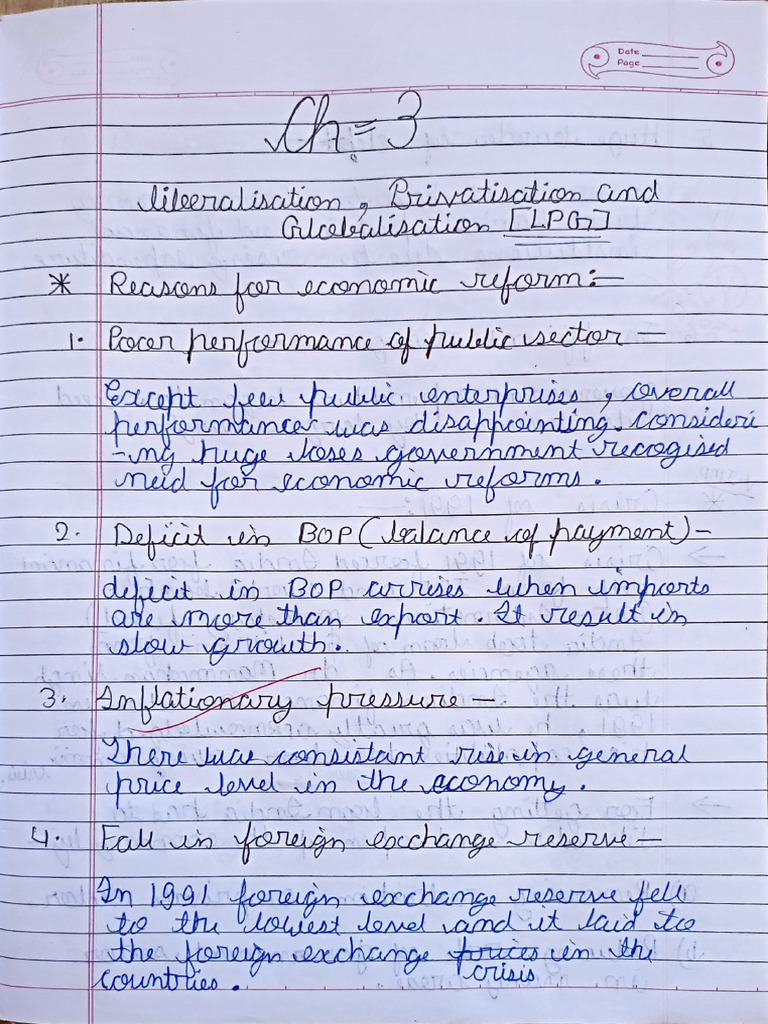 Date
Page
Ch = 3
Liberalisation, Privatisation and
Globalisation [LPG]
* Reasons for economic reform:-
1. Poor performance of public sector -
Except few public enterprises, overall
performance was disappointing. Consideri
-ng huge loses government recogised
neid for economic reforms.
2. Deficit in BOP (balance of payment) -
deficit in BOP arrises when imports
are more than export. It result in
slow growth.
3. Inflationary pressure -
There was consistant rise in general
price level in the economy.
4. Fall in foreign exchange reserve -
In 1991 foreign exchange reserve fell
to the lowest level and it laid to
the foreign exchange prices in the
crisis
countries.